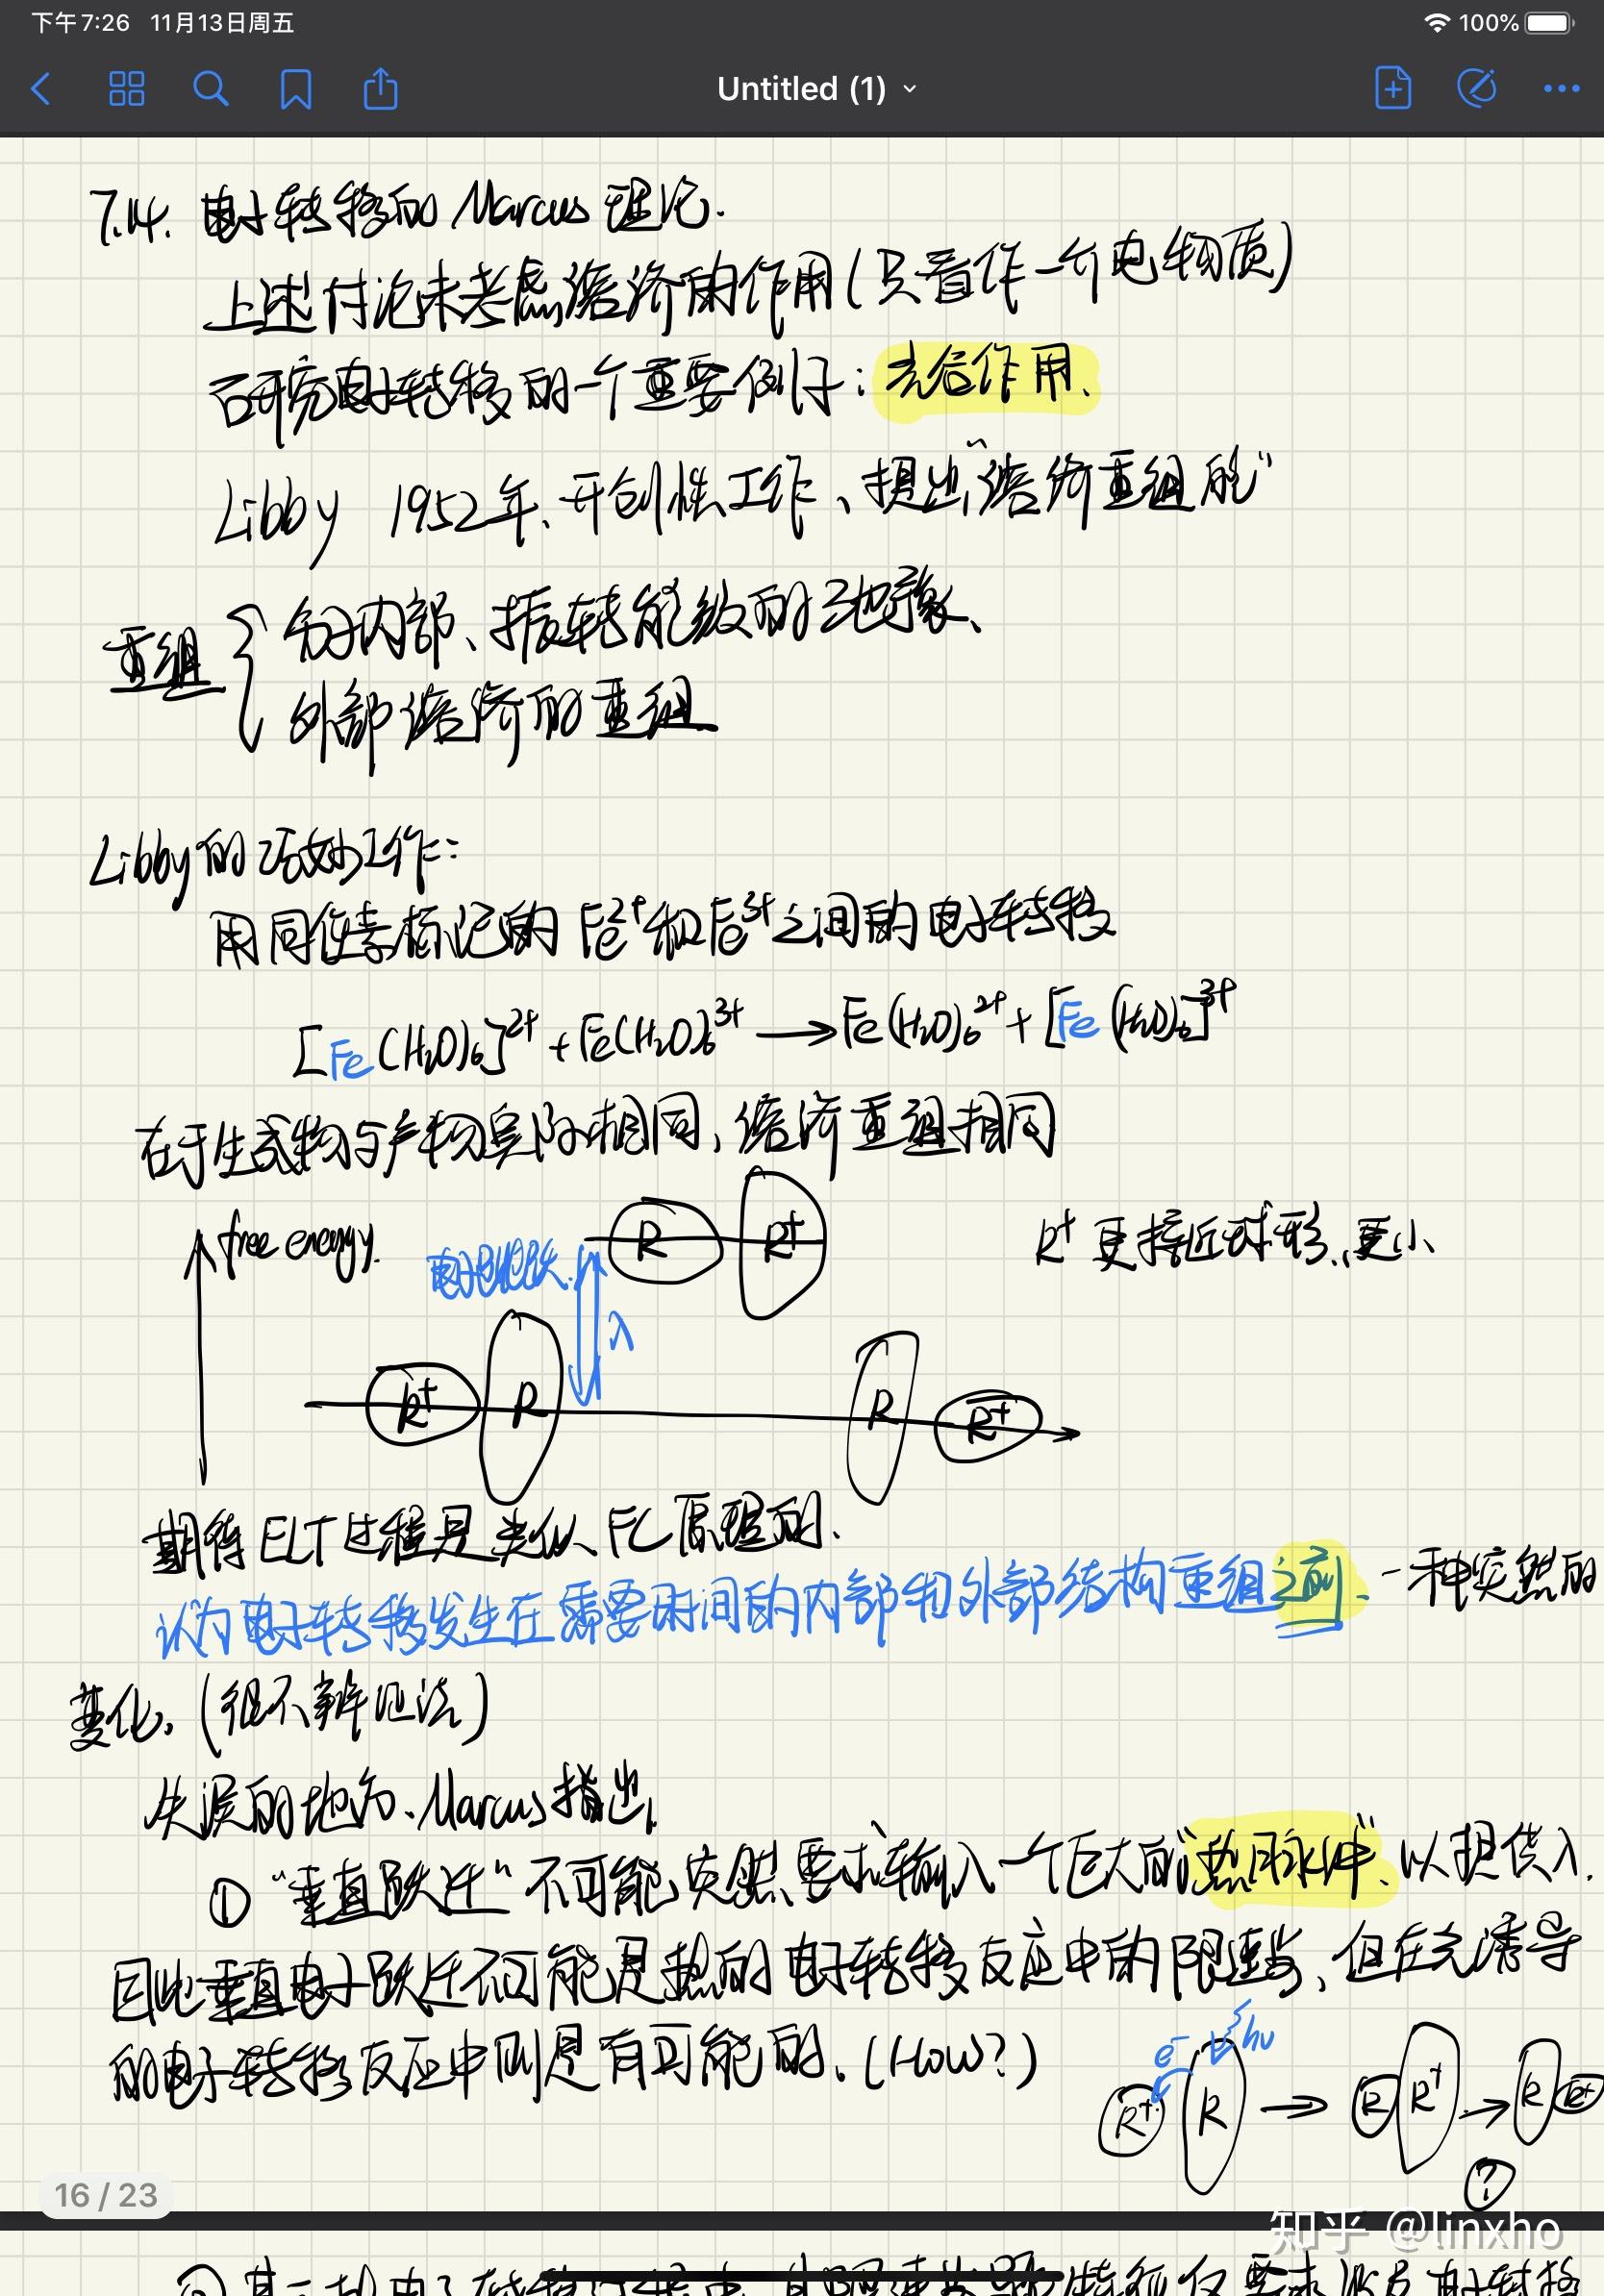 下午7:26 11月13日周五
100%
Untitled (1)
7.14. 电子转移的 Marcus 理论.
上述讨论未考虑溶济的作用(只看作一个电物质)
研究电子转移的一个重要例子: 光合作用、
Libby 1952年、开创性工作、提出“溶济重组能”
重组
分子内部、振转能级的弛豫、
外部溶济的重组
Libby的巧妙工作:
用同位素标记的 Fe2+和Fe3+之间的电子转移
[Fe(H2O)6]2+ + Fe(H2O)63+ → Fe(H2O)62+ + [Fe(H2O)6]3+
在于生成物与产物实际相同, 溶济重组相同
free energy.
R R+
R+ 更接近球形, 更小
电子跃迁. λ
R+ R R R+
期待 ELT过程是类似、FC原理的、
认为电子转移发生在需要时间的内部和外部结构重组之前、一种突然的
变化。(很不辨证法)
失误的地方、Marcus指出,
① “垂直跃迁”不可能突然要求输入一个巨大的“热脉冲”、以提供λ.
因此垂直电子跃迁不可能是热的电子转移反应中的限速步、但在光诱导
的电子转移反应中则是有可能的、(How?)
e- hν
R+ R → R R+ → R R+
?
16 / 23
知乎 @linxho